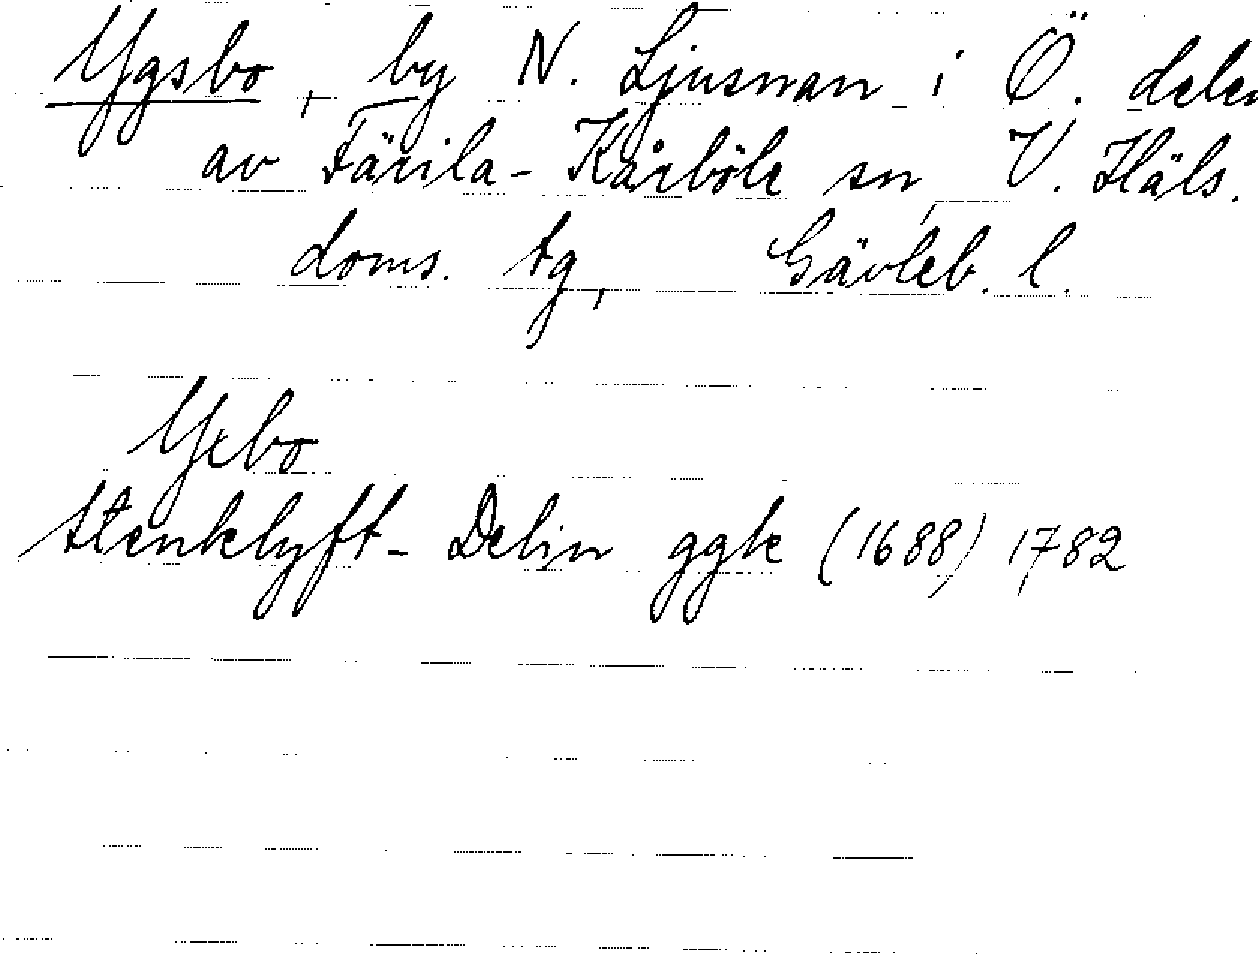 Ygsbo, by N. Ljusnan i Ö. delen
av Färila-Kårböle sn, V. Häls.
doms. tg, Gävleb. l.
Yxbo
Stenklyft- Delin ggk (1688) 1782